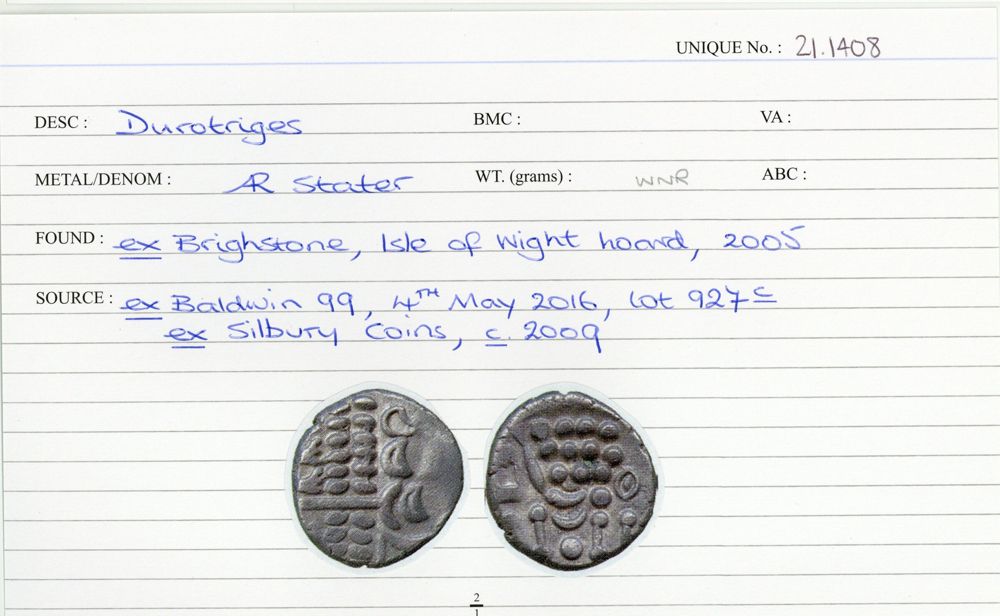 UNIQUE No. : 21.1408
DESC : Durotriges BMC : VA :
METAL/DENOM : AR Stater WT. (grams) : WNR ABC :
FOUND : ex Brighstone, Isle of Wight hoard, 2005
SOURCE : ex Baldwin 99, 4TH May 2016, lot 927c
ex Silbury Coins, c. 2009
2
1